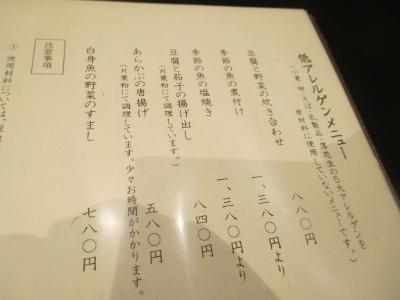 低アレルゲンメニュー
(小麦、卵、そば、乳製品、落花生の5大アレルゲンを
原材料に使用していないメニューです。)
豆腐と野菜の炊き合わせ 八八〇円
季節の魚の煮付け 一、三八〇円より
季節の魚の塩焼き 一、三八〇円より
豆腐と茄子の揚げ出し 八四〇円
(片栗粉にて調理しています。)
あらかぶの唐揚げ 五八〇円
(片栗粉にて調理しています。少々お時間がかかります。)
白身魚の野菜のすまし 七八〇円
注意事項
① 使用材料については、